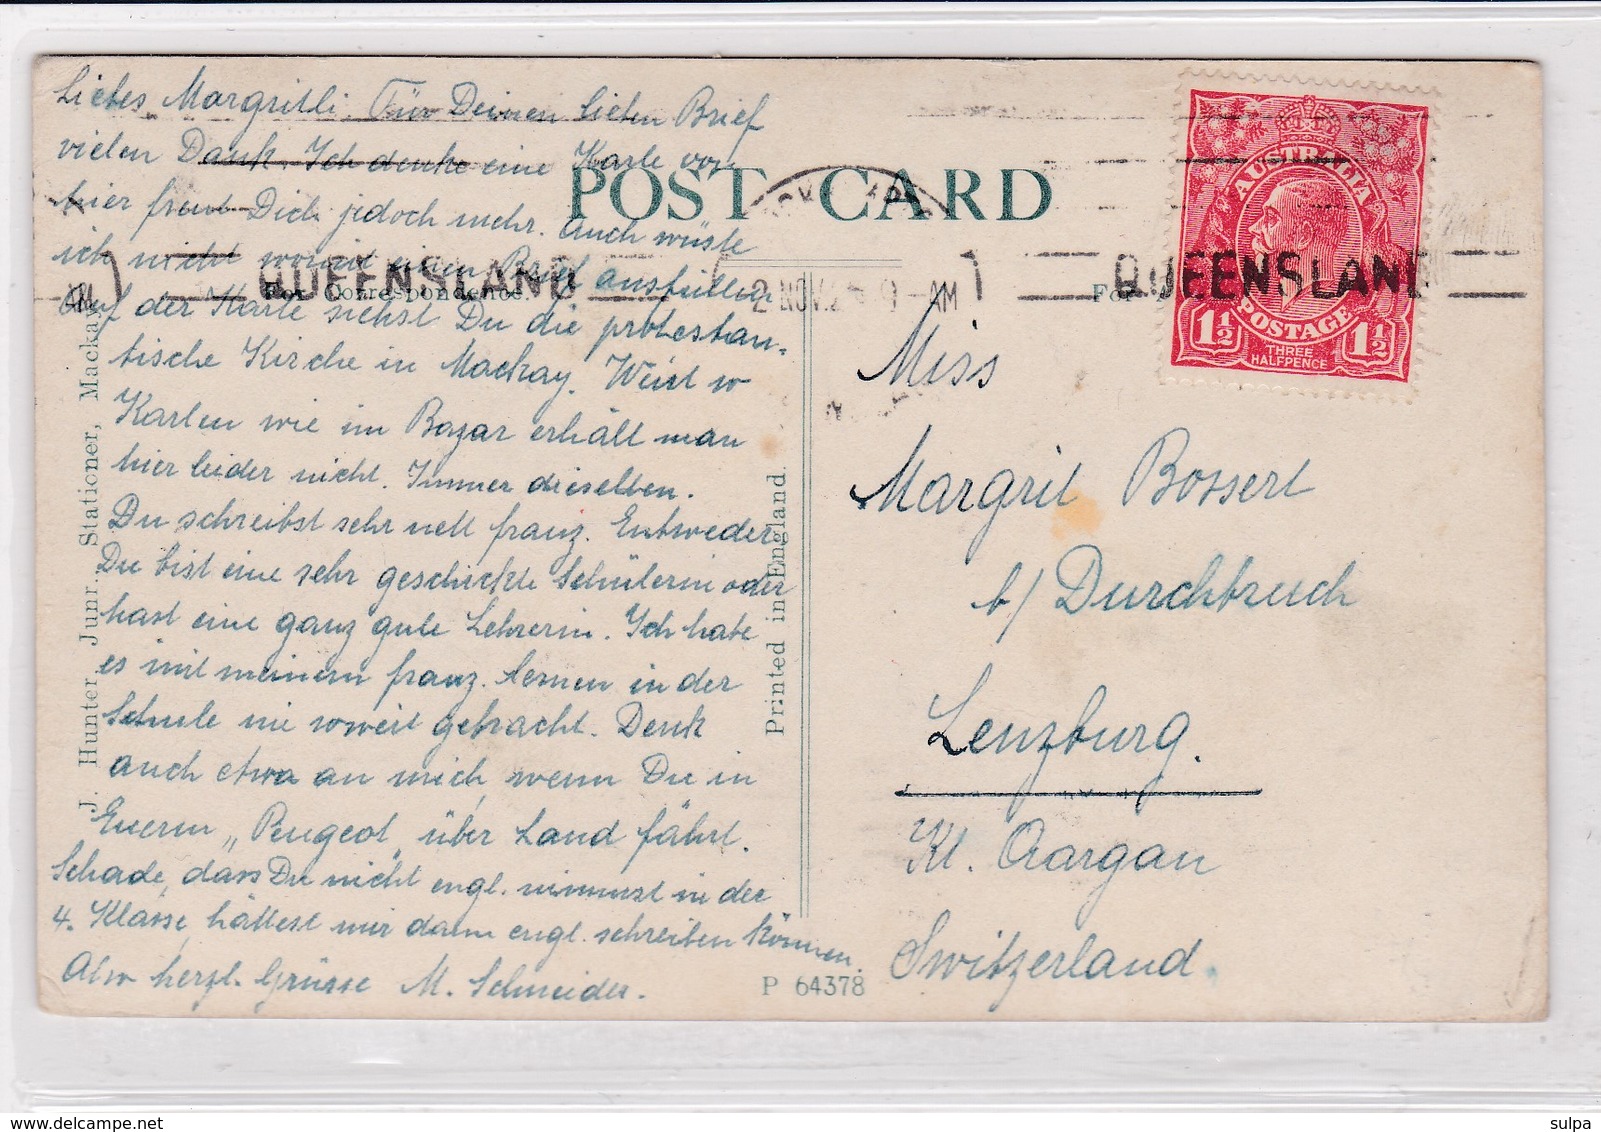 Liebes Margritli. Für Deinen lieben Brief
vielen Dank. Ich denke eine Karte von
hier freut Dich jedoch mehr. Auch wüsste
ich nicht womit einen Brief ausfüllen
Auf der Karte siehst Du die protestan-
tische Kirche in Mackay. Weist so
Karten wie im Bazar erhält man
hier leider nicht. Immer dieselben.
Du schreibst sehr nett franz. Entweder
Du bist eine sehr geschickte Schülerin oder
hast eine ganz gute Lehrerin. Ich habe
es mit meinem franz. lernen in der
Schule nie soweit gebracht. Denk
auch etwa an mich, wenn Du in
Eurem „Peugeot" über Land fährt.
Schade, dass Du nicht engl. nimmst in der
4. Klasse, hättest mir dann engl. schreiben können.
Also herzl. Grüsse M. Schneider.
POST CARD
For Correspondence.
For
QUEENSLAND
AM
2 NOV. 9-AM
QUEENSLAND
AUSTRALIA
POSTAGE
1½ 1½
THREE
HALFPENCE
Miss
Margrit Bossert
b/ Durchbruch
Lenzburg.
Kt. Aargau
Switzerland.
J. Hunter, Junr., Stationer, Mackay
Printed in England.
P 64378
sulpa